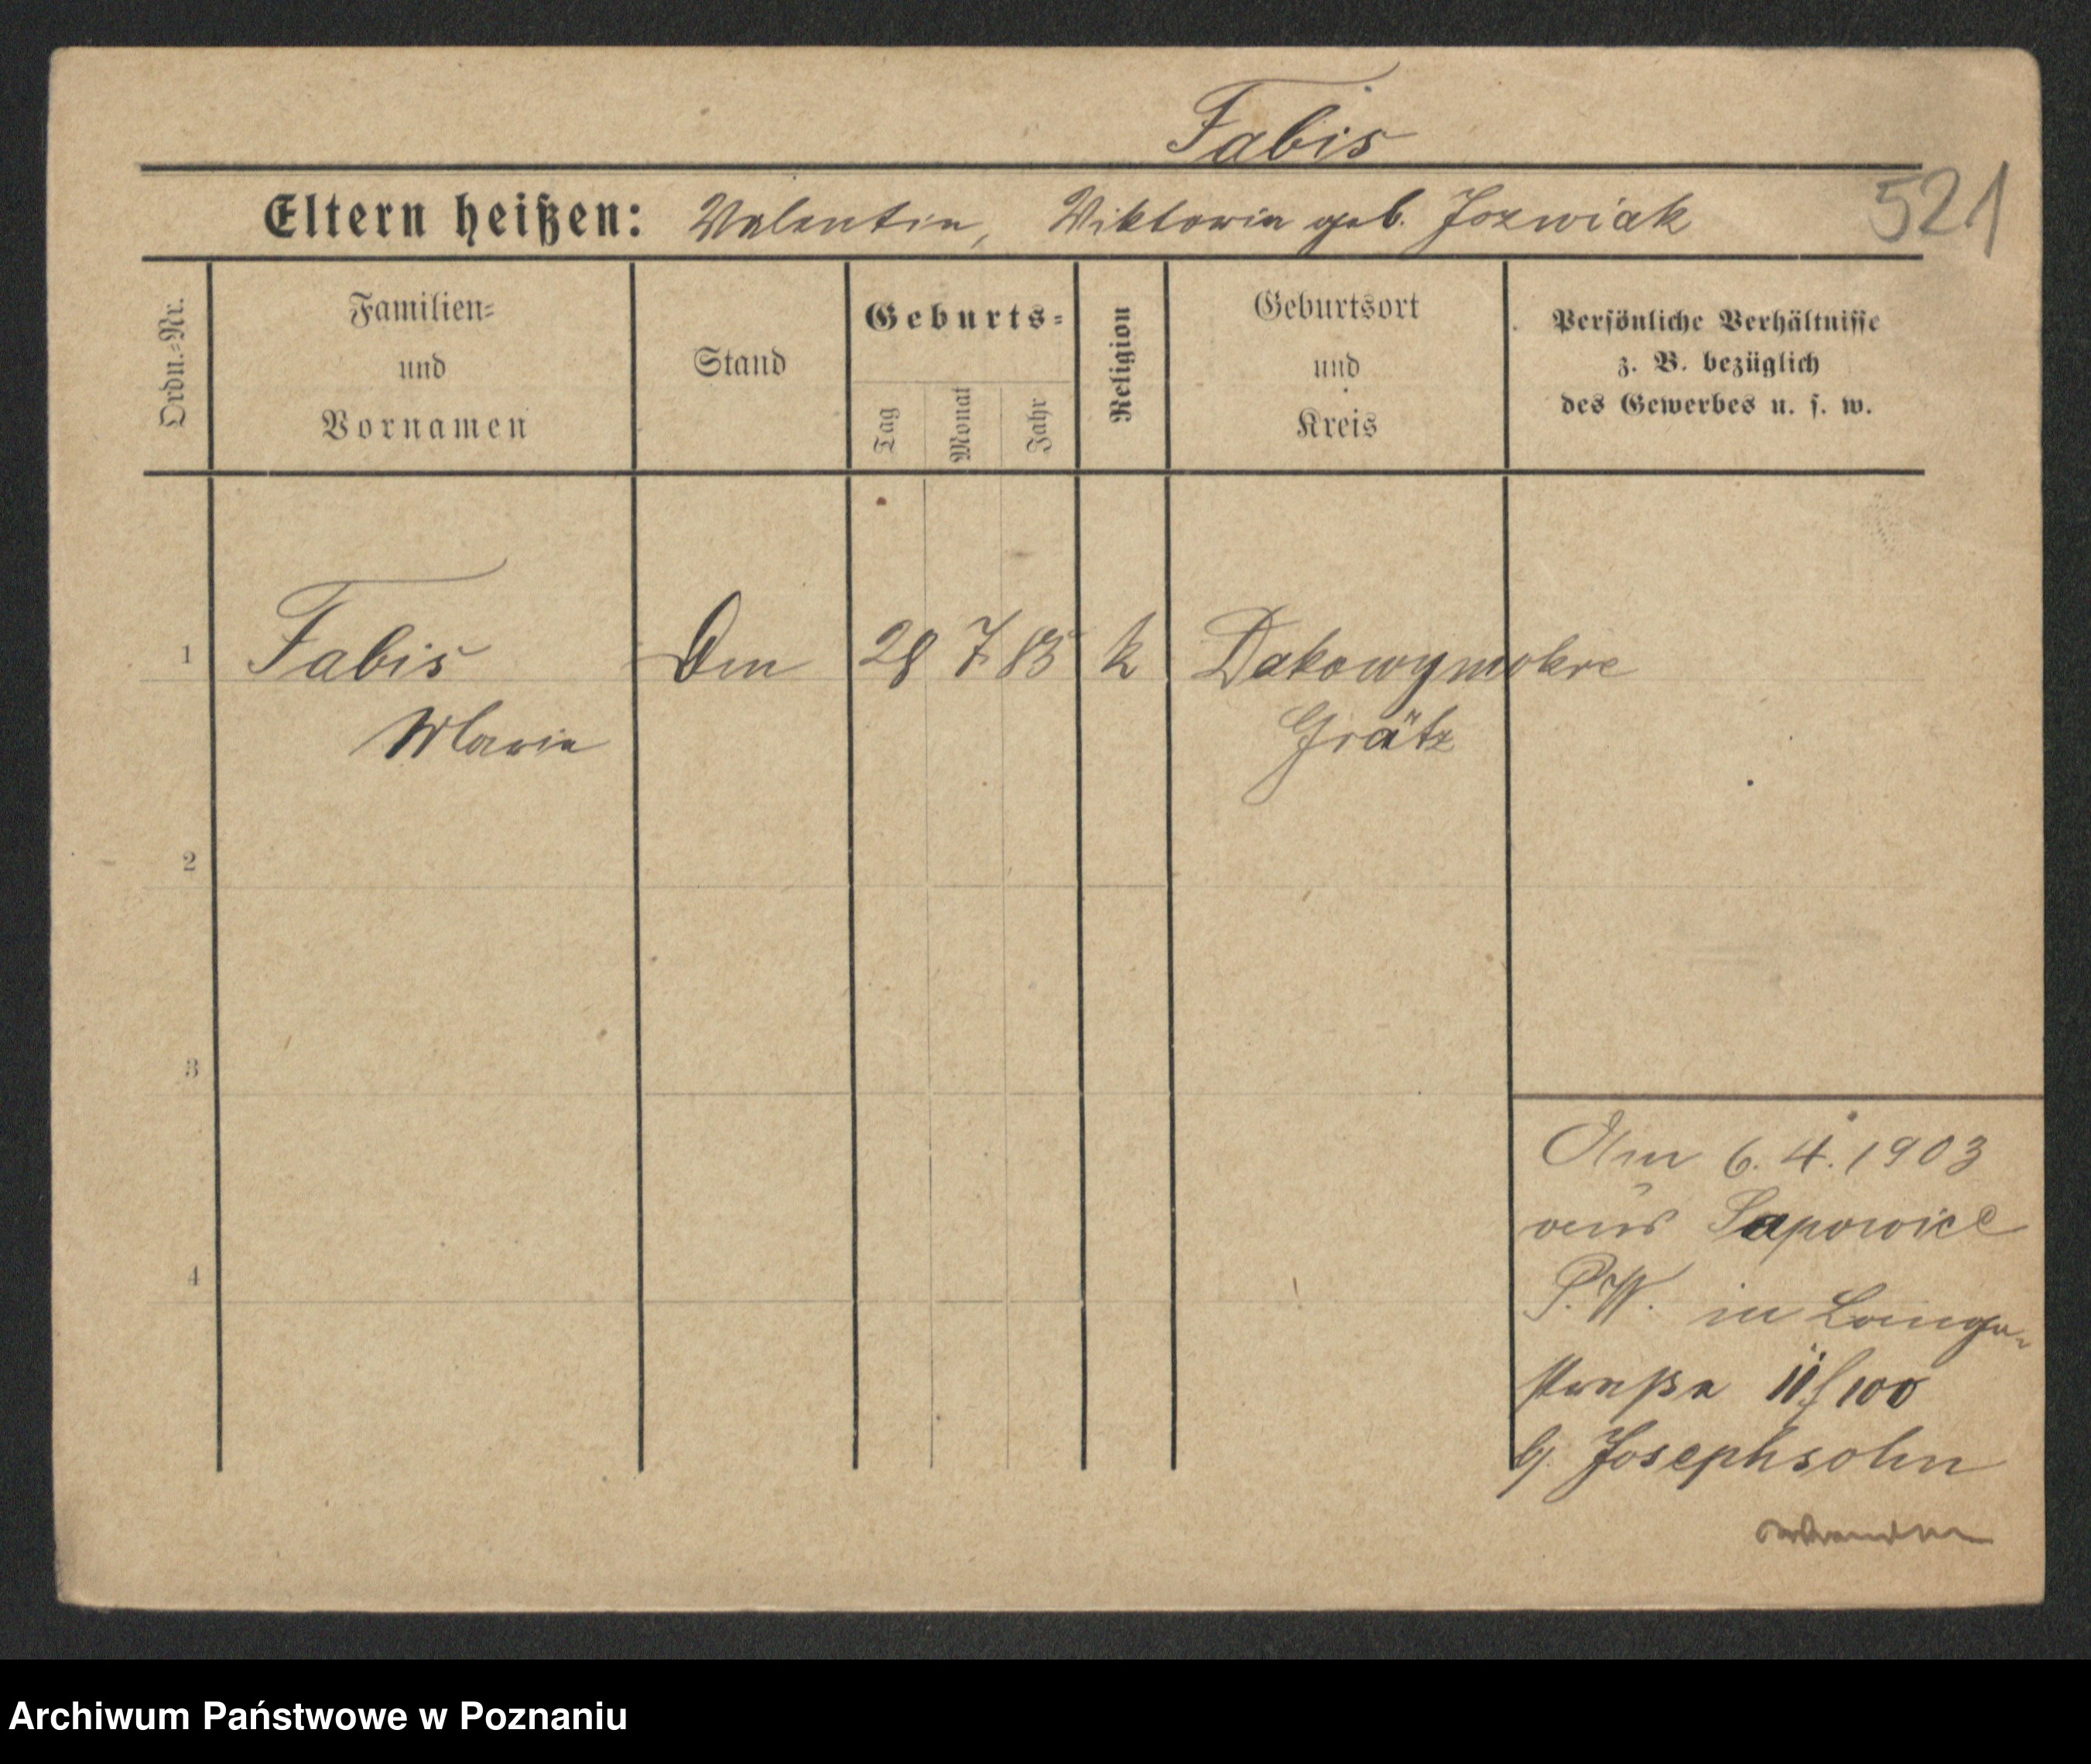 Fabis
Eltern heißen: Valentin, Viktoria geb. Jozwiak
521
Ordn.=Nr.
Familien=
und
Vornamen
Stand
Geburts=
Tag
Monat
Jahr
Religion
Geburtsort
und
Kreis
Persönliche Verhältnisse
z. B. bezüglich
des Gewerbes u. s. w.
1 Fabis Dm 28 7 85 k Dakowymokre
Maria Grätz
2
3
4
Am 6. 4. 1903
aus Sapowice
P. W. in Lange-
straße 11/100
b/ Josephsohn
Archiwum Państwowe w Poznaniu